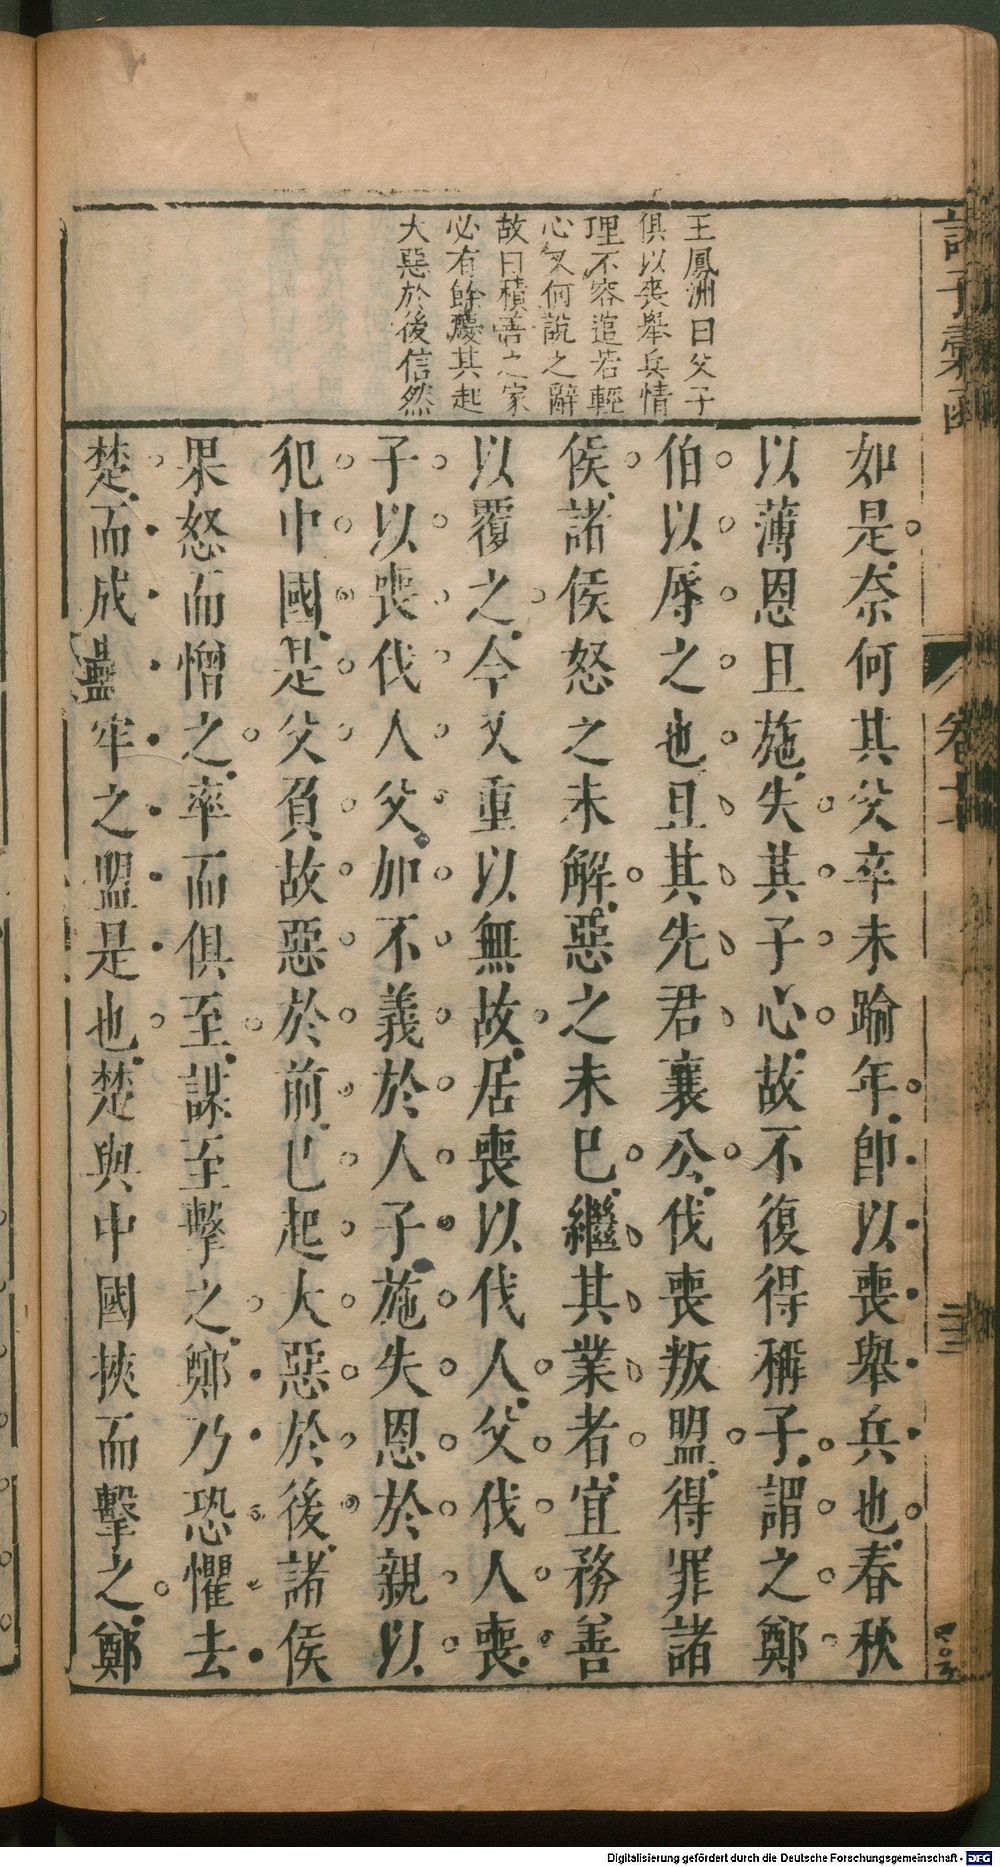 王鳳洲曰父子
俱以喪舉兵情
理不容逭若輕
心又何說之辭
故曰積善之家
必有餘慶其起
大惡於後信然
如是奈何其父卒未踰年卽以喪舉兵也春秋
以薄恩且施失其子心故不復得稱子謂之鄭
伯以辱之也且其先君襄公伐喪叛盟得罪諸
侯諸侯怒之未解惡之未巳繼其業者宜務善
以覆之今又重以無故居喪以伐人父伐人喪
子以喪伐人父加不義於人子施失恩於親以
犯中國是父負故惡於前巳起大惡於後諸侯
果怒而憎之率而俱至謀至擊之鄭乃恐懼去
楚而成蠱牢之盟是也楚與中國挾而擊之鄭
諸子彙函
卷 二
Digitalisierung gefördert durch die Deutsche Forschungsgemeinschaft - DFG